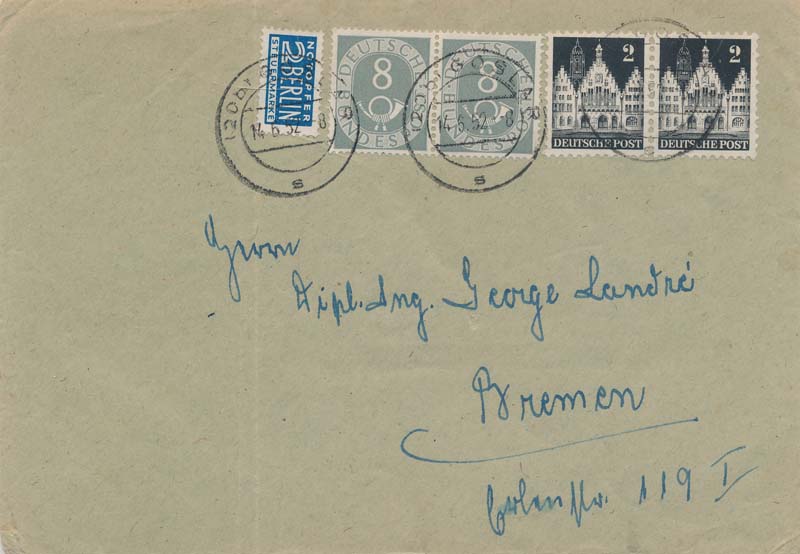 NOTOPFER
2 BERLIN
STEUERMARKE
DEUTSCHE
8
BUNDESPOST
DEUTSCHE
8
BUNDESPOST
2
DEUTSCHE POST
2
DEUTSCHE POST
(20b) GOSLAR
14.6.52.-8
s
(20b) GOSLAR
14.6.52.-8
s
Herrn
Dipl. Ing. George Landré
Bremen
Erlenstr. 119 I